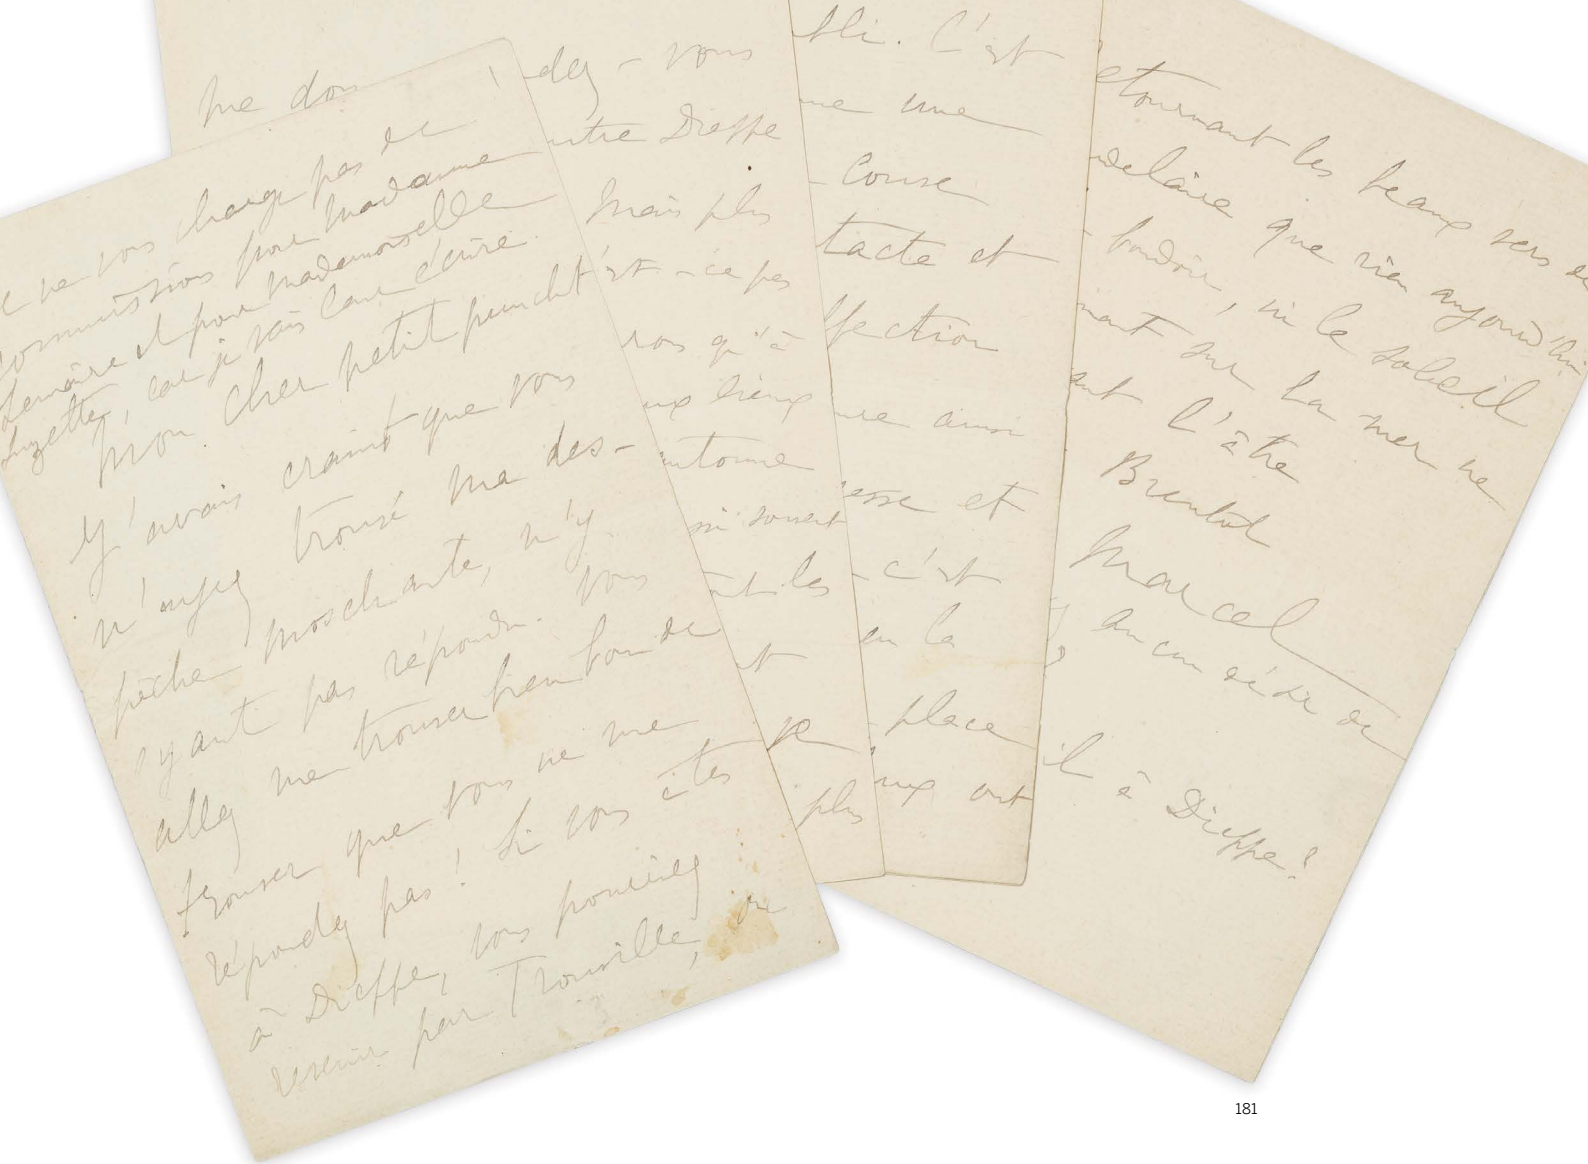 ne vous charge pas de
commissions pour Madame
Lemaire et pour Mademoiselle
Suzette, car je vais leur écrire.
Mon cher petit puncht
J'avais craint que vous
n'ayez trouvé ma des-
pêche moschante, n'y
ayant pas répondu. Vous
allez me trouver bien bon de
trouver que vous ne me
répondez pas! Si vous êtes
à Dieppe, vous pourriez
revenir par Trouville, ou
me don
dez-vous
ntre Dieppe
Mais plus
st-ce pas
rons qu'à
ux lieux
utomne
si souvent
nt les
nt
je
plus
bli. C'est
me une
Conse
tacte et
ffection
ure ainsi
esse et
c'est
en la
place
ux ont
etournant les beaux vers de
udelaire que rien aujourd'hui
boudoir, ni le soleil
nant sur la mer ne
aut l'âtre
Breutal
Marcel
aucun désir de
il à Dieppe?
181